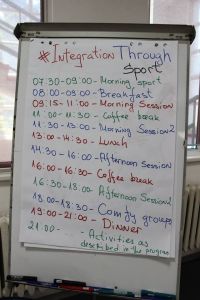 # Integration Through
Sport
07:30-09:00 - Morning sport
08:00-09:00 - Breakfast
09:15-11:00 - Morning Session
11:00-11:30 - Coffee break
11:30-13:00 - Morning Session 2
13:00-14:30 - Lunch
14:30-16:00 - Afternoon Session
16:00-16:30 - Coffee break
16:30-18:00 - Afternoon Session 2
18:00-18:30 - Comfy groups
19:00-21:00 - Dinner
21:00 - Activities as
described in the program